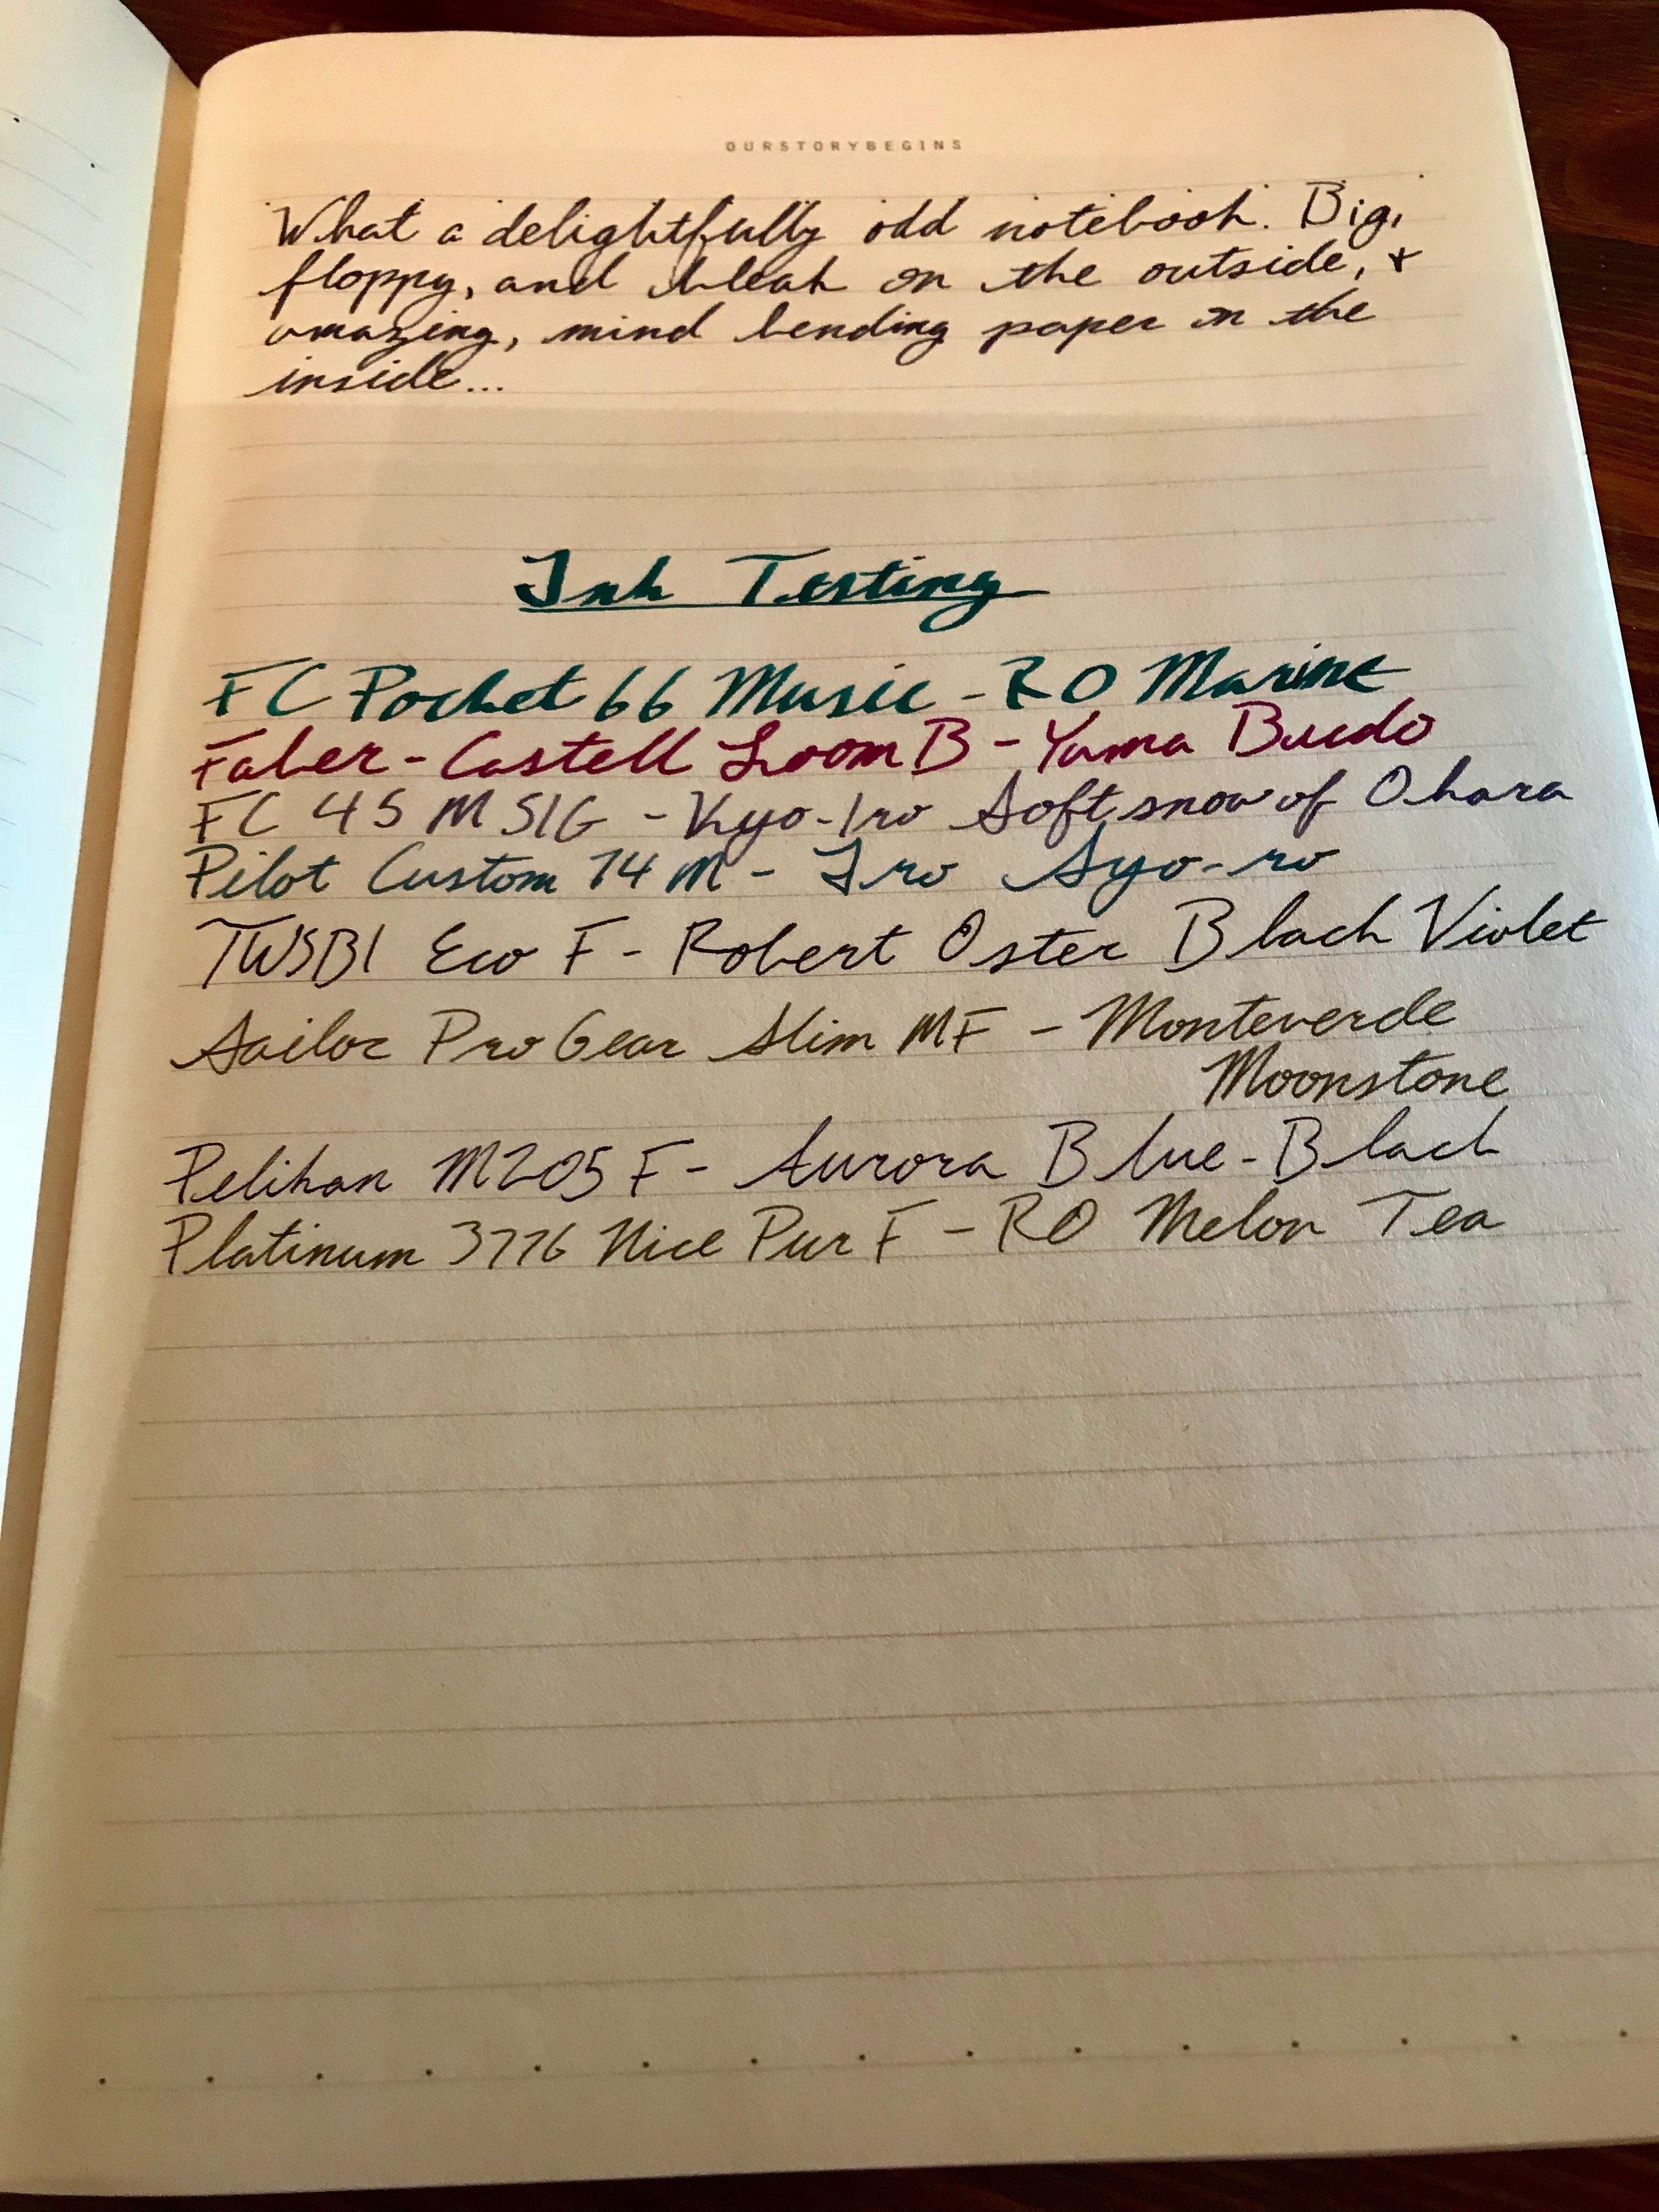 OURSTORYBEGINS
What a delightfully odd notebook. Big,
floppy, and bleak on the outside, +
amazing, mind bending paper on the
inside...
Ink Testing
FC Pocket 66 Music - RO Marine
Faber-Castell Loom B - Yama Budo
FC 45 M SIG - Kyo-Iro Soft snow of Ohara
Pilot Custom 74 M - Iro Syo-ro
TWSBI Eco F - Robert Oster Black Violet
Sailor Pro Gear Slim MF - Monteverde
Moonstone
Pelikan M205 F - Aurora Blue-Black
Platinum 3776 Nice Pur F - RO Melon Tea